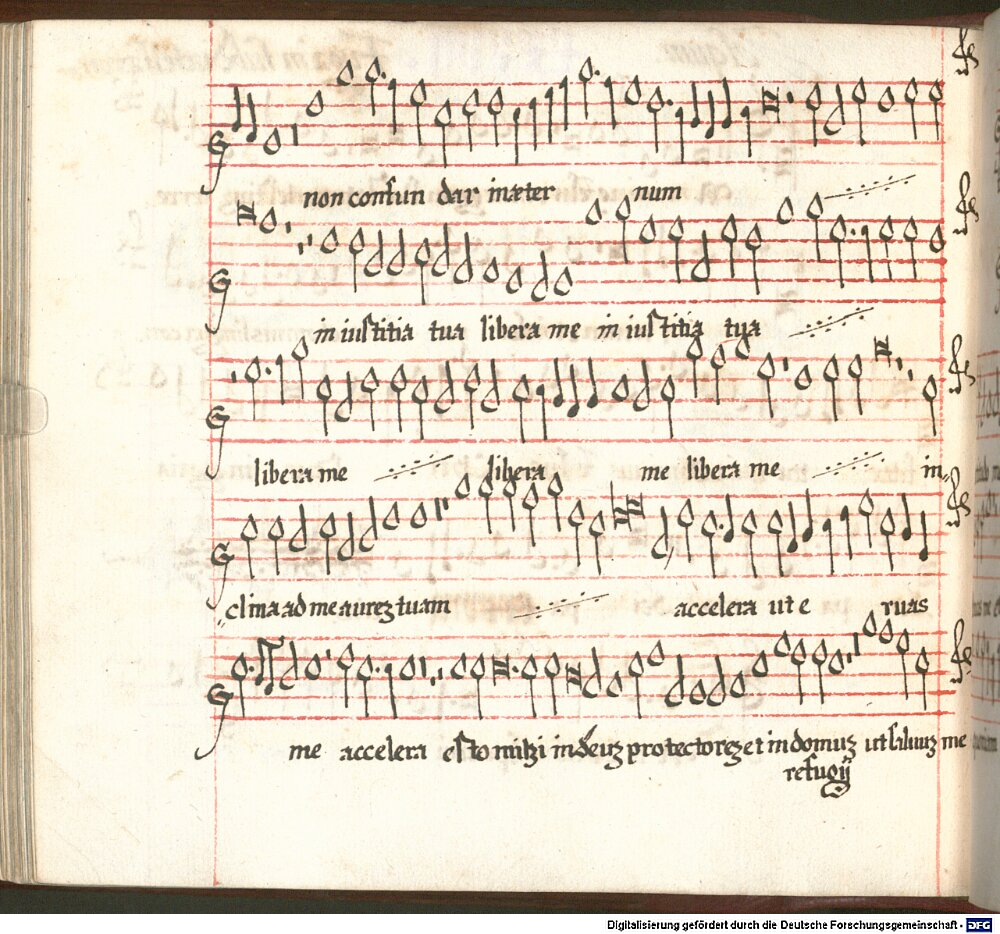 non confun dar in æter num
in iustitia tua libera me in iustitia tua
libera me libera me libera me in-
clina ad me aurez tuam accelera ut e ruas
me accelera esto mihi in deuz protectorez et in domuz ut saluuz me
refugij
Digitalisierung gefördert durch die Deutsche Forschungsgemeinschaft - DFG